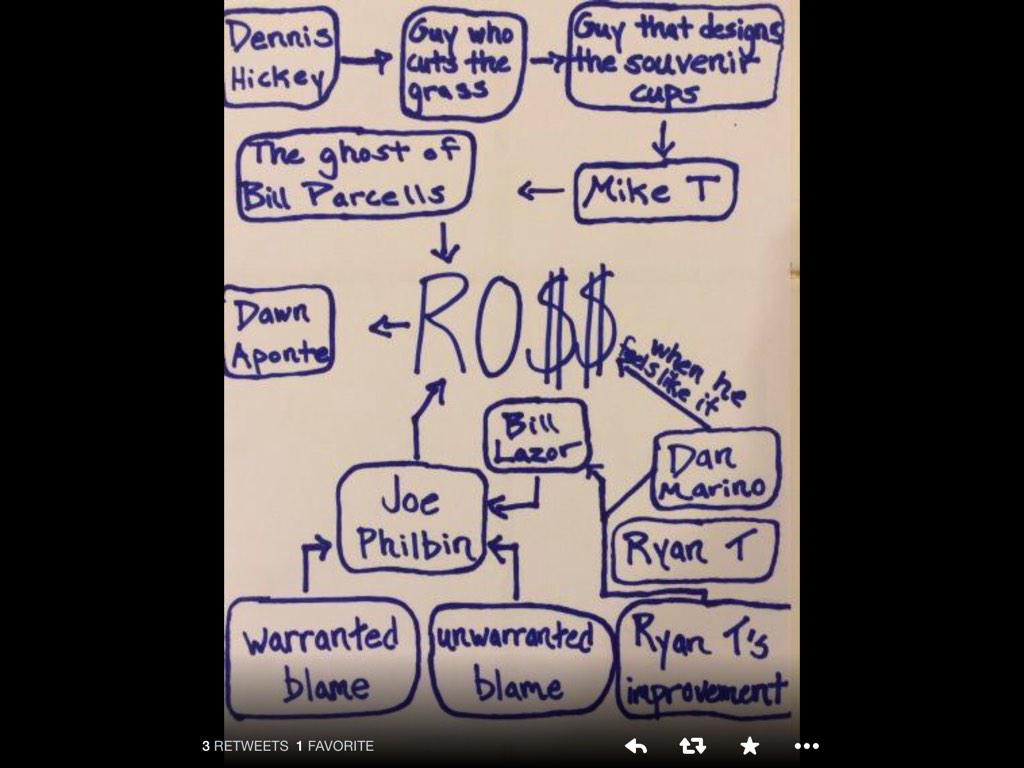 Dennis
Hickey
Guy who
cuts the
grass
Guy that designs
the souvenir
cups
The ghost of
Bill Parcells
Mike T
RO$$
Dawn
Aponte
when he
feels like it
Bill
Lazor
Dan
Marino
Joe
Philbin
Ryan T
warranted
blame
unwarranted
blame
Ryan T's
improvement
3 RETWEETS 1 FAVORITE